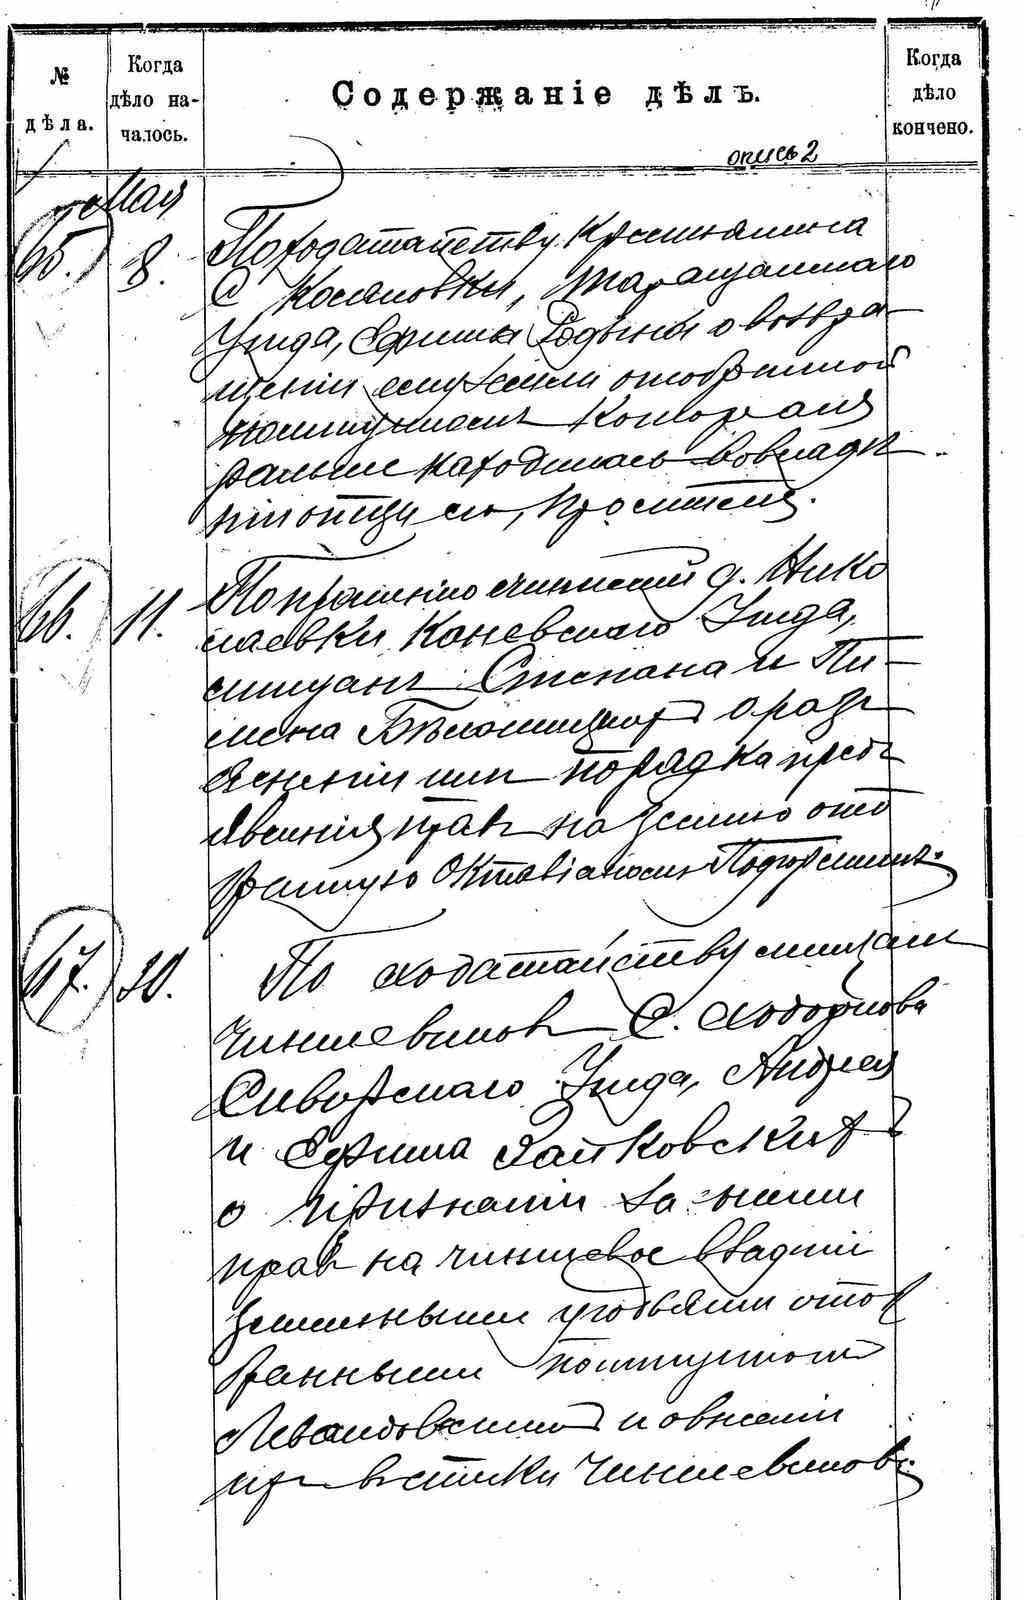 № дѣла.
Когда дѣло на-чалось.
Содержаніе дѣлъ.
Когда дѣло кончено.
опись 2
Мая
65. 8. По ходатайству крестьянина
с. Косяковки, Таращанскаго
Уѣзда, Ефима о возвра
щеніи ему земли отобранной
которая
раньше находилась во владѣ
ніи отца его, просителя.
66. 11. По прошенію д. Нико
лаевки Каневскаго Уѣзда,
мѣщанъ Степана и Пи-
мена о разъ
ясненіи имъ порядка предъ
явленія правъ на землю отоб
ранную Октавіаномъ Подгорскимъ.
67. 20. По ходатайству мѣщан
чиншевиковъ с. Ходоркова
Сквирскаго Уѣзда, Андрея
и Ефима Зайковскихъ
о признаніи за ними
правъ на чиншевое владѣніе
земельными угодьями отоб
ранными
Левандовскимъ и о внесеніи
въ списки чиншевиковъ.